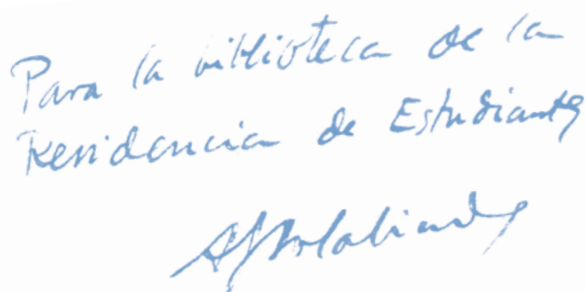 Para la biblioteca de la
Residencia de Estudiantes